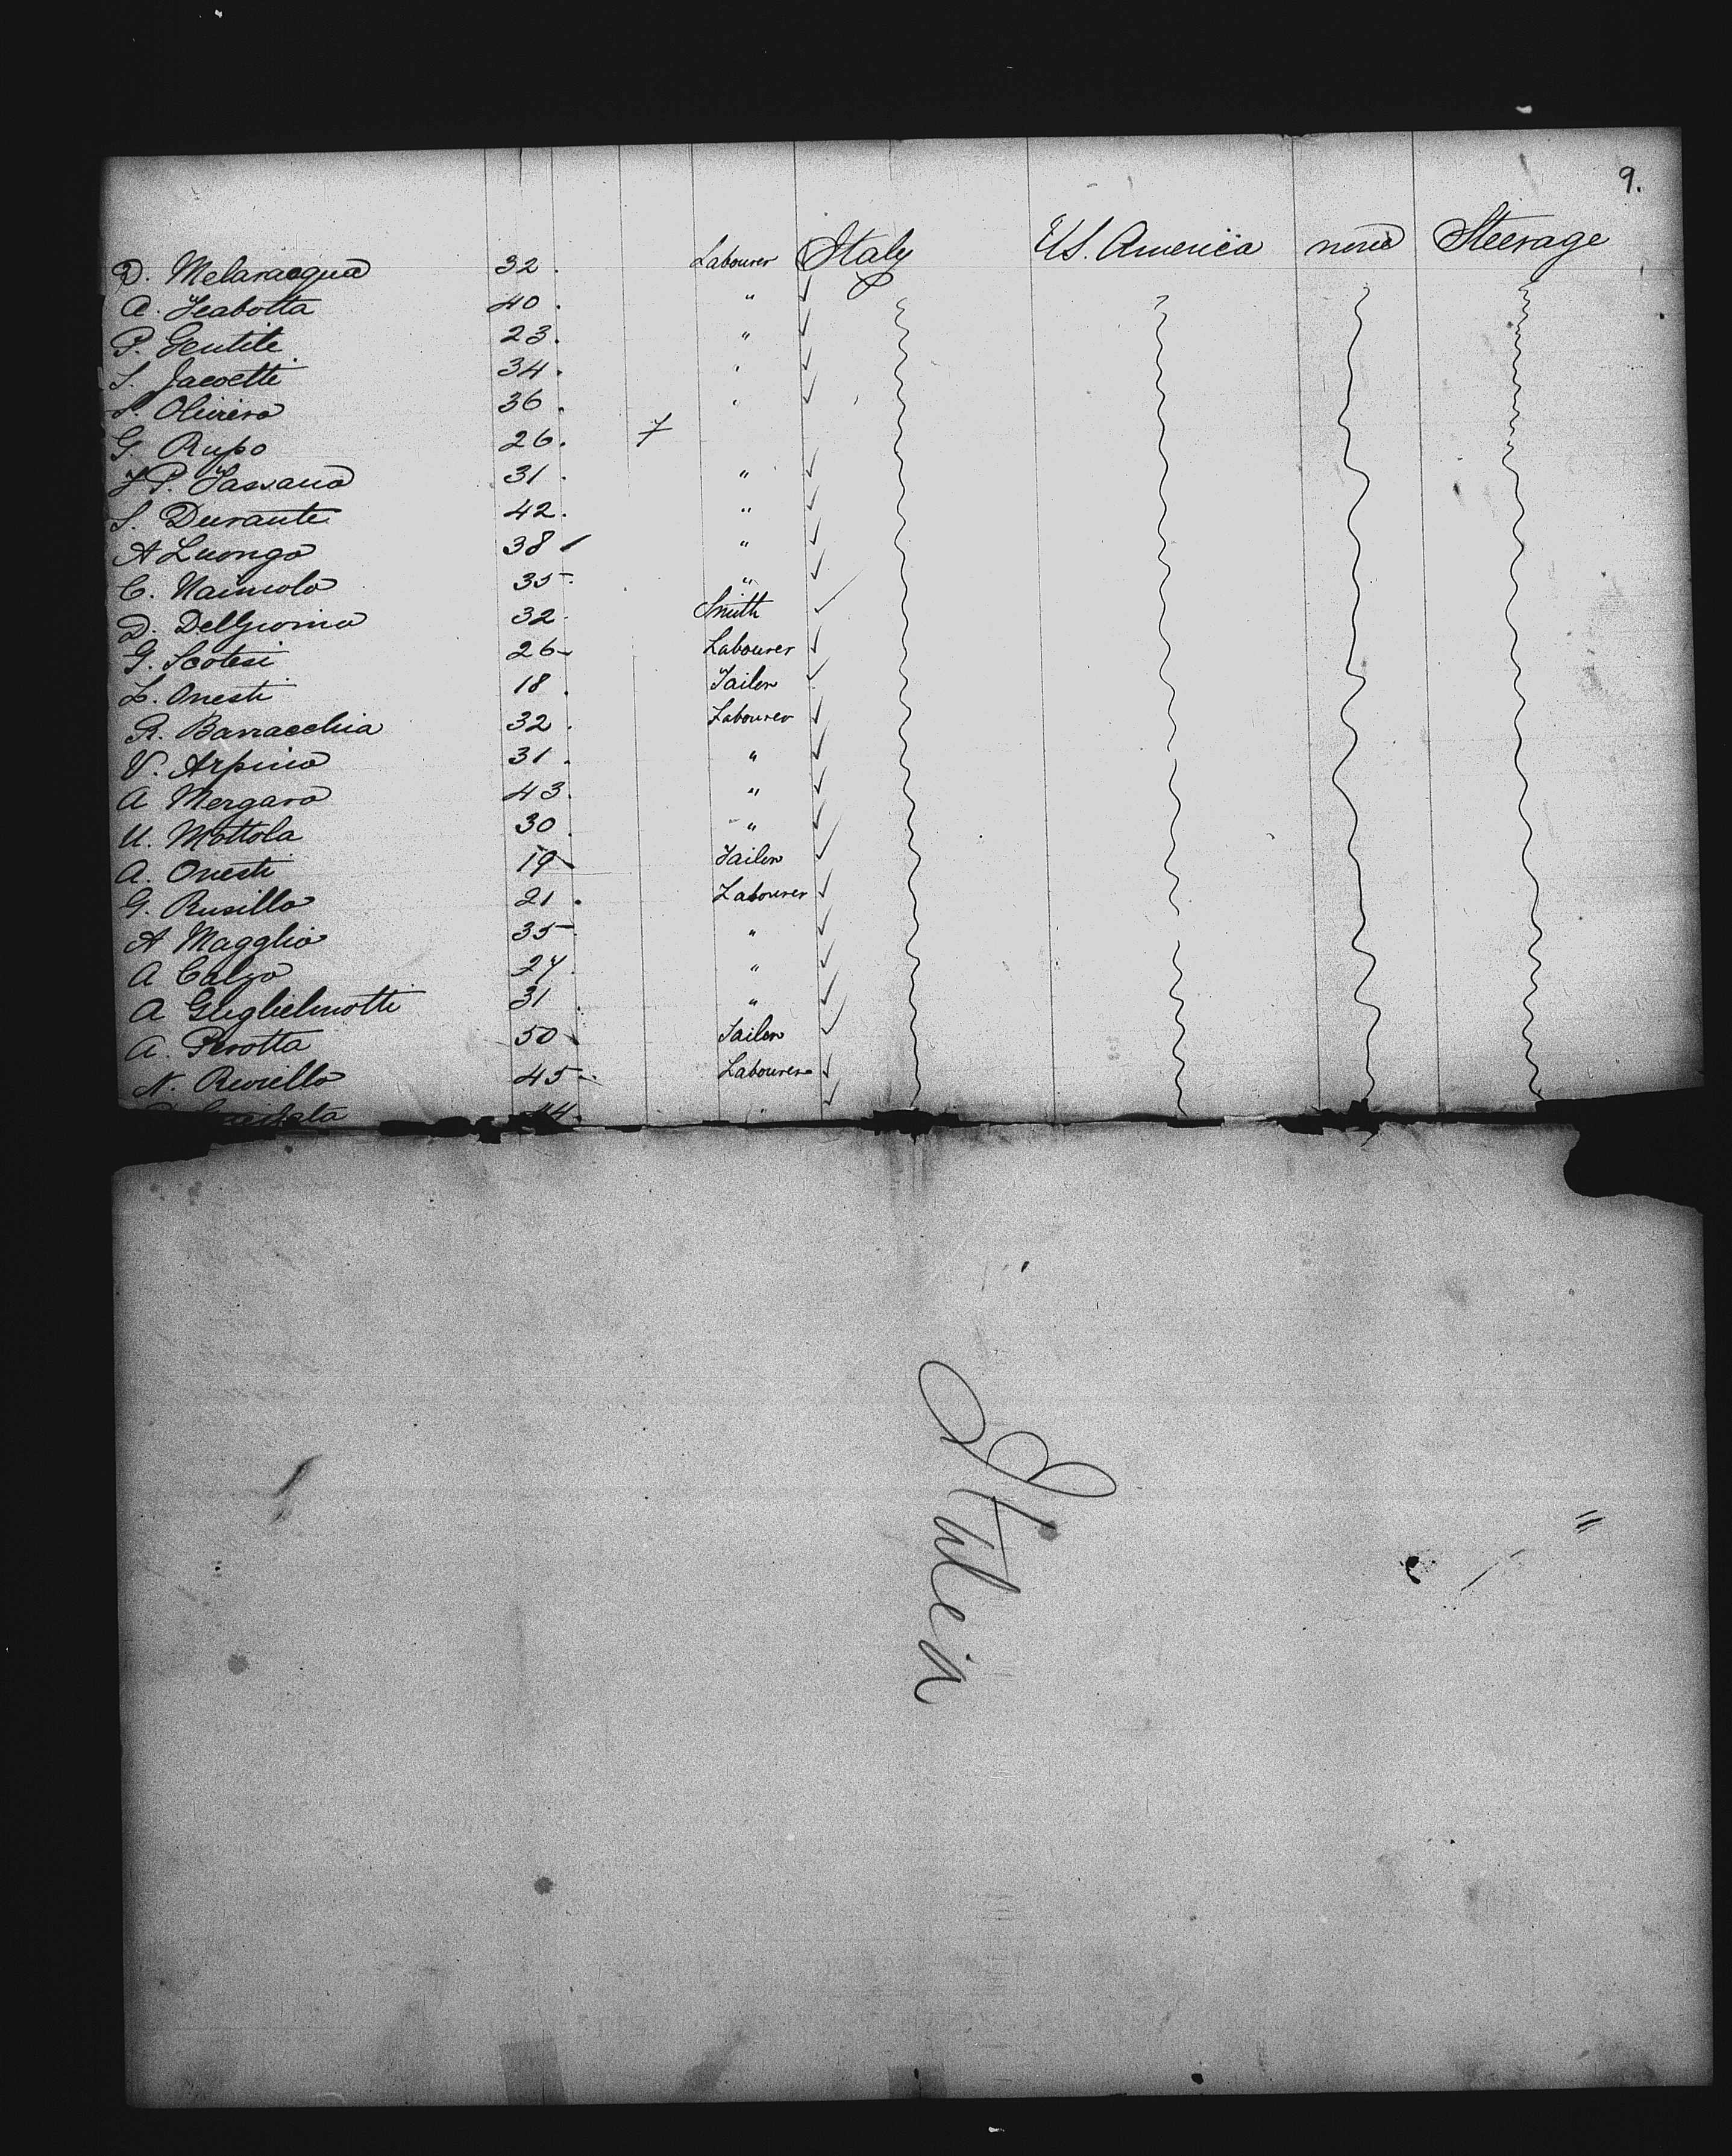 9.
D. Melaracqua 32. Labourer Italy U.S. America none Steerage
A. Scabotta 40. "
P. Gentile 23. "
S. Jacoetti 34. "
S. Oliviero 36. "
G. Rupo 26.
31. "
S. Durante 42. "
A Luongo 38 "
C. Naimolo 35 "
D. DelGiorno 32. Smith
G. Scotesi 26 Labourer
L. Onesti 18. Tailor
R. Barracchia 32. Labourer
V. Arpino 31. "
A Mergaro 43. "
U. Mottola 30. "
A. Onesti 19 Tailor
G. Rusillo 21. Labourer
A Magglio 35 "
A Calzo 24. "
A Guglielmotti 31. "
A. Perotta 50 Tailor
N. Reviello 45 Labourer
44. "